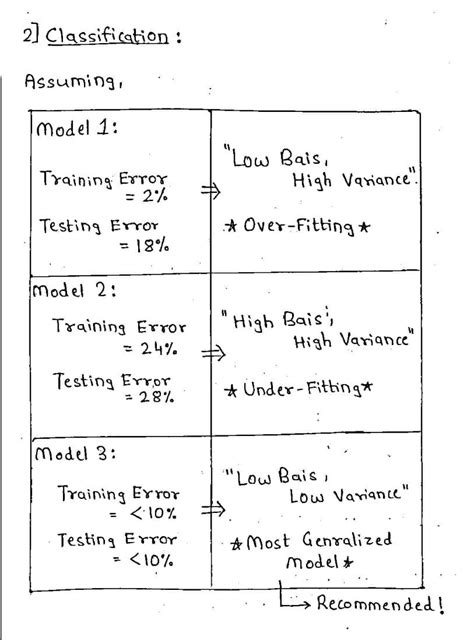 2] Classification :
Assuming,
Model 1:
Training Error
= 2%
Testing Error
= 18%
⇒
"Low Bais,
High Variance".
★ Over-Fitting ★
Model 2:
Training Error
= 24%
Testing Error
= 28%
⇒
"High Bais,
High Variance"
★ Under-Fitting ★
Model 3:
Training Error
= <10%
Testing Error
= <10%
⇒
"Low Bais,
Low Variance"
★ Most Genralized
Model ★
→ Recommended!